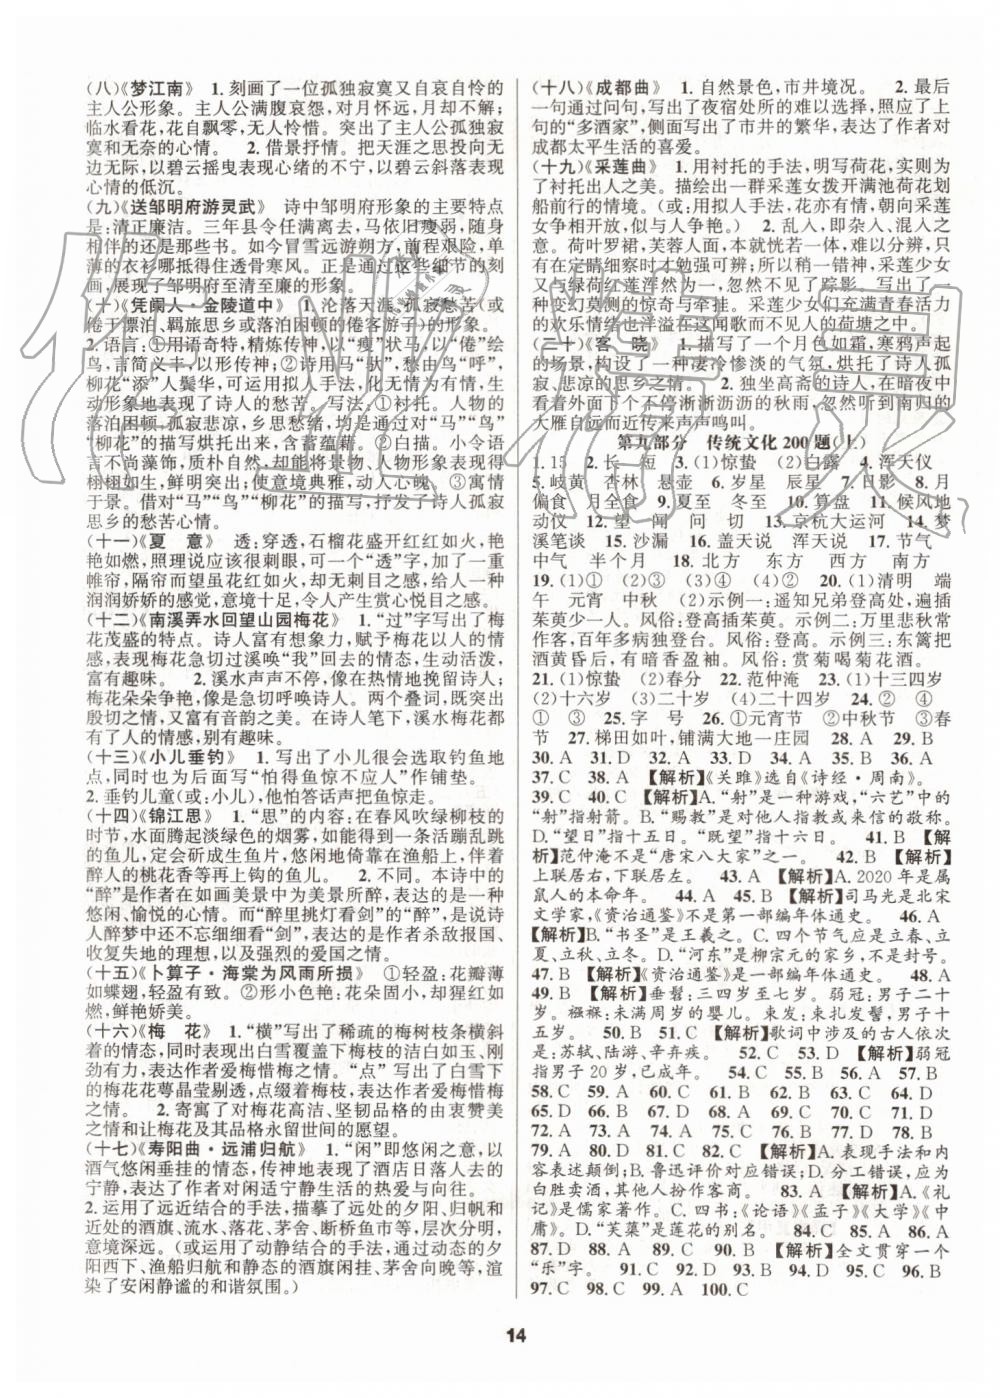 (八)《梦江南》 1. 刻画了一位孤独寂寞又自哀自怜的
主人公形象。主人公满腹哀怨，对月怀远，月却不解；
临水看花，花自飘零，无人怜惜。突出了主人公孤独寂
寞和无奈的心情。 2. 借景抒情。把天涯之思投向无
边无际，以碧云摇曳表现心绪的不宁，以碧云斜落表现
心情的低沉。
(九)《送邹明府游灵武》 诗中邹明府形象的主要特点
是：清正廉洁。三年县令任满离去，与他骑来的瘦马相
伴的还是那些书。如今冒雪远游朔方，前程艰险，单
薄的衣衫抵不住透骨寒风。正是通过这些细节的刻
画，展现了邹明府至清至廉的形象。
(十)《凭阑人·金陵道中》 1. 沦落天涯、孤寂愁苦(或
倦于漂泊、羁旅思乡或落泊困顿的倦客游子)的形象。
2. 语言：①用语奇特，精炼传神，以“瘦”状马，以“倦”绘
鸟，言简义丰，以形传神；②诗用马“驮”，愁由鸟“呼”，
柳花“添”人鬓华，可运用拟人手法，化无情为有情，生
动形象地表现了诗人的愁苦。写法：①衬托。人物的
落泊困顿、孤寂愁苦、乡思愁绪，均是通过对“马”“鸟”
“柳花”的描写烘托出来，含蓄蕴藉。②白描。小令语
言不尚藻饰，质朴自然，对景物、人物形象的表现得
栩栩如生，鲜明突出；使意境典雅，动人心魄。③寓情
于景。借对“马”“鸟”“柳花”的描写，抒发了诗人孤寂
思乡的愁苦心情。
(十一)《夏 意》 透：穿透，石榴花盛开红红如火，艳
艳如燃，照理说应该很刺眼，可一个“透”字写了一重
帷帘，隔帘而望虽有红花如火，却无刺目之感，给人一种
润润娇娇的感觉，意境十足，令人产生赏心悦目之感。
(十二)《南溪弄水回望山园梅花》 1.“过”字写出了梅
花茂盛的特点。诗人富有想象力，赋予梅花以人的情
感，表现梅花急切过溪唤“我”回去的情态，生动活泼，
富有趣味。 2. 溪水声声不停，像在热情地挽留诗人；
梅花朵朵争艳，像是急切呼唤诗人。两个叠词，既突出
殷切之情，又富有音韵之美。在诗人笔下，溪水梅花都
有了人的情感，别有趣味。
(十三)《小儿垂钓》 1. 写出了小儿很会选取钓鱼地
点，同时也为后面写“怕得鱼惊不应人”作铺垫。
2. 垂钓儿童(或：小儿)，他怕答话声把鱼惊走。
(十四)《锦江思》 1.“思”的内容：在春风吹绿柳枝的
时节，水面腾起淡绿色的烟雾，如能得到一条活蹦乱跳
的鱼儿，定会斫成生鱼片，悠闲地倚靠在渔船上，伴着
醉人的桃花香等再上钩的鱼儿。 2. 不同。本诗中的
“醉”是作者在如画美景中为美景所醉，表达的是一种
悠闲、愉悦的心情。而“醉里挑灯看剑”的“醉”，是说诗
人醉梦中还不忘细细看“剑”，表达的是作者杀敌报国、
收复失地的理想，以及强烈的爱国之情。
(十五)《卜算子·海棠为风雨所损》 ①轻盈：花瓣薄
如蝶翅，轻盈有致。②形象恣艳：花朵固小，却猩红如
燃，鲜艳娇美。
(十六)《梅 花》 1.“横”写出了稀疏的梅树枝条横斜
着的情态，同时表现出白雪覆盖下梅枝的洁白如玉、刚
劲有力，表达作者爱梅惜梅之情。“点”写出了白雪下
的梅花花萼晶莹剔透，点缀着梅枝，表达作者爱梅惜梅
之情。 2. 寄寓了对梅花高洁、坚韧品格的由衷赞美
之情和让梅花及其品格永留世间的愿望。
(十七)《寿阳曲·远浦归航》 1.“闲”即悠闲之意，以
酒气悠闲垂挂的情态，传神地表现了酒店日落人去的
宁静，表达作者对闲适宁静生活的热爱与向往。
2. 运用了远近结合的手法，描摹了远处的夕阳、归帆和
近处的酒旗、流水、落花、茅舍、断桥鱼市等，层次分明，
意境深远。(或运用了动静结合的手法，通过动态的夕
阳西下、渔船归航和静态的酒旗闲挂、茅舍向晚等，渲
染了安闲静谧的和谐氛围。)
(十八)《成都曲》 1. 自然景色，市井境况。 2. 最后
一句通过问句，写出了夜宿处所的难以选择，照应了上
句的“多酒家”，侧面写出了市井的繁华，表达了作者对
成都太平生活的喜爱。
(十九)《采莲曲》 1. 用衬托的手法，明写荷花，实则为
了衬托出人之美。描绘出一群采莲女拨开满池荷花划
船前行的情境。(或：用拟人手法，花亦有情，朝向采莲
女争相开放，似与人争艳。) 2. 乱入，即杂入、混入之
意。荷叶罗裙，芙蓉人面，本来就恍若一体，难以分辨，
只有在定睛细察时才勉强可辨；所以稍一错神，采莲少女
又与绿荷红莲浑然为一，忽然不见了踪影，写出了一
种变幻莫测的惊奇与牵挂。采莲少女们充满青春活力
的欢乐情绪也洋溢在这闻歌而不见人的荷塘之中。
(二十)《客 晓》 1. 描写了一个月色如霜，寒鸦声起
的场景，构设了一种凄冷惨淡的气氛，烘托了诗人孤
寂、悲凉的思乡之情。 2. 独坐高斋的诗人，在暗夜中
看着外面下个不停淅淅沥沥的秋雨，忽然听到南归的
大雁自远而近传来声声鸣叫。
第九部分 传统文化200题(上)
1. 15 2. 长 短 3. (1)惊蛰 (2)白露 4. 浑天仪
5. 岐黄 杏林 悬壶 6. 岁星 辰星 7. 日影 8. 月
偏食 月全食 9. 夏至 冬至 10. 算盘 11. 候风地
动仪 12. 望 闻 问 切 13. 京杭大运河 14. 梦
溪笔谈 15. 沙漏 16. 盖天说 浑天说 17. 节气
中气 半个月 18. 北方 东方 西方 南方
19. (1)① (2)③ (3)④ (4)② 20. (1)清明 端
午 元宵 中秋 (2)示例一：遥知兄弟登高处，遍插
茱萸少一人。风俗：登高插茱萸。示例二：万里悲秋常
作客，百年多病独登台。风俗：登高。示例三：东篱把
酒黄昏后，有暗香盈袖。风俗：赏菊喝菊花酒。
21. (1)惊蛰 (2)春分 22. 范仲淹 23. (1)十三四岁
(2)十六岁 (3)二十岁 (4)二十四岁 24. ② ④
① ③ 25. 字 号 26. ①元宵节 ②中秋节 ③春
节 27. 梯田如画，铺满大地一庄园 28. A 29. B
30. A 31. D 32. D 33. D 34. D 35. A 36. A
37. C 38. A 【解析】《关雎》选自《诗经·周南》。
39. C 40. C 【解析】A.“射”是一种游戏，“六艺”中的
“射”指射箭。B.“赐教”是对他人指教或来信的敬称。
D.“望日”指十五日。“既望”指十六日。 41. B 【解
析】范仲淹不是“唐宋八大家”之一。 42. B 【解析】
上联居右，下联居左。 43. A 【解析】A. 2020年是属
鼠人的本命年。 44. A 45. B 【解析】司马光是北宋
文学家，《资治通鉴》不是第一部编年体通史。 46. A
【解析】B.“书圣”是王羲之。C. 四个节气应是立春、立
夏、立秋、立冬。D.“河东”是柳宗元的家乡，不是封号。
47. B 【解析】《资治通鉴》是一部编年体通史。 48. A
49. B 【解析】垂髫：三四岁至七岁。弱冠：男子二十
岁。襁褓：未满周岁的婴儿。束发：束扎发髻，男子十
五岁。 50. B 51. C 【解析】歌词中涉及的古人依次
是：苏轼、陆游、辛弃疾。 52. C 53. D 【解析】弱冠
指男子20岁，已成年。 54. C 55. D 56. A 57. B
58. C 59. C 60. C 61. B 62. B 63. C 64. D
65. D 66. B 67. B 68. D 69. C 70. C 71. B
72. A 73. D 74. A 75. D 76. B 77. A 78. B
79. A 80. D 81. C 82. C 【解析】A. 表现手法和内
容表述颠倒；B. 鲁迅评价对应错误；D. 分工错误，应为
白胜卖酒，其他人扮作客商。 83. A 【解析】A.《礼
记》是儒家著作。C. 四书：《论语》《孟子》《大学》《中
庸》。D.“芙蕖”是莲花的别名。 84. C 85. A 86. A
87. D 88. B 89. D 90. C 【解析】全文贯穿一个
“乐”字。 91. C 92. C 93. B 94. B 95. C 96. B
97. C 98. C 99. A 100. C
14